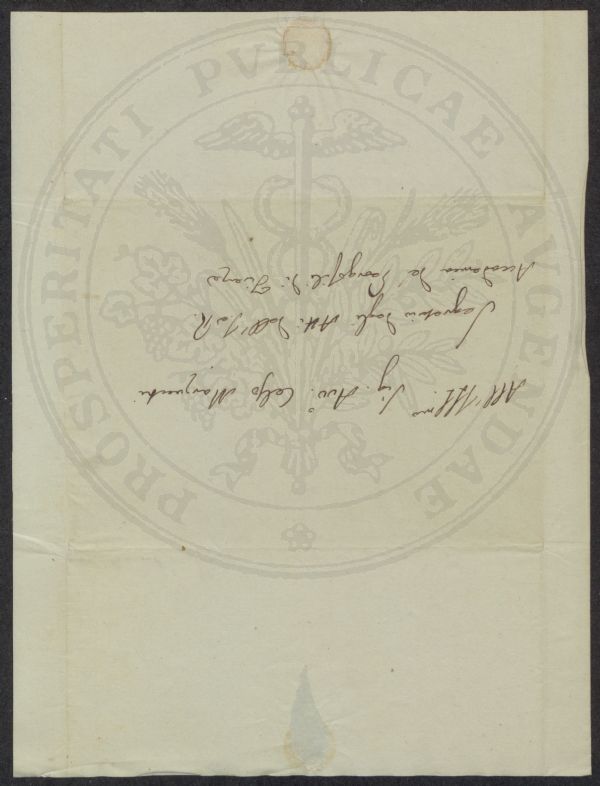 PROSPERITATI PUBLICAE AUGENDAE
All'Ill.mo Sig. Avv.o Celso Marzucchi
Segretario degli Atti dell'I. e R.
Accademia de' Georgofili di Firenze